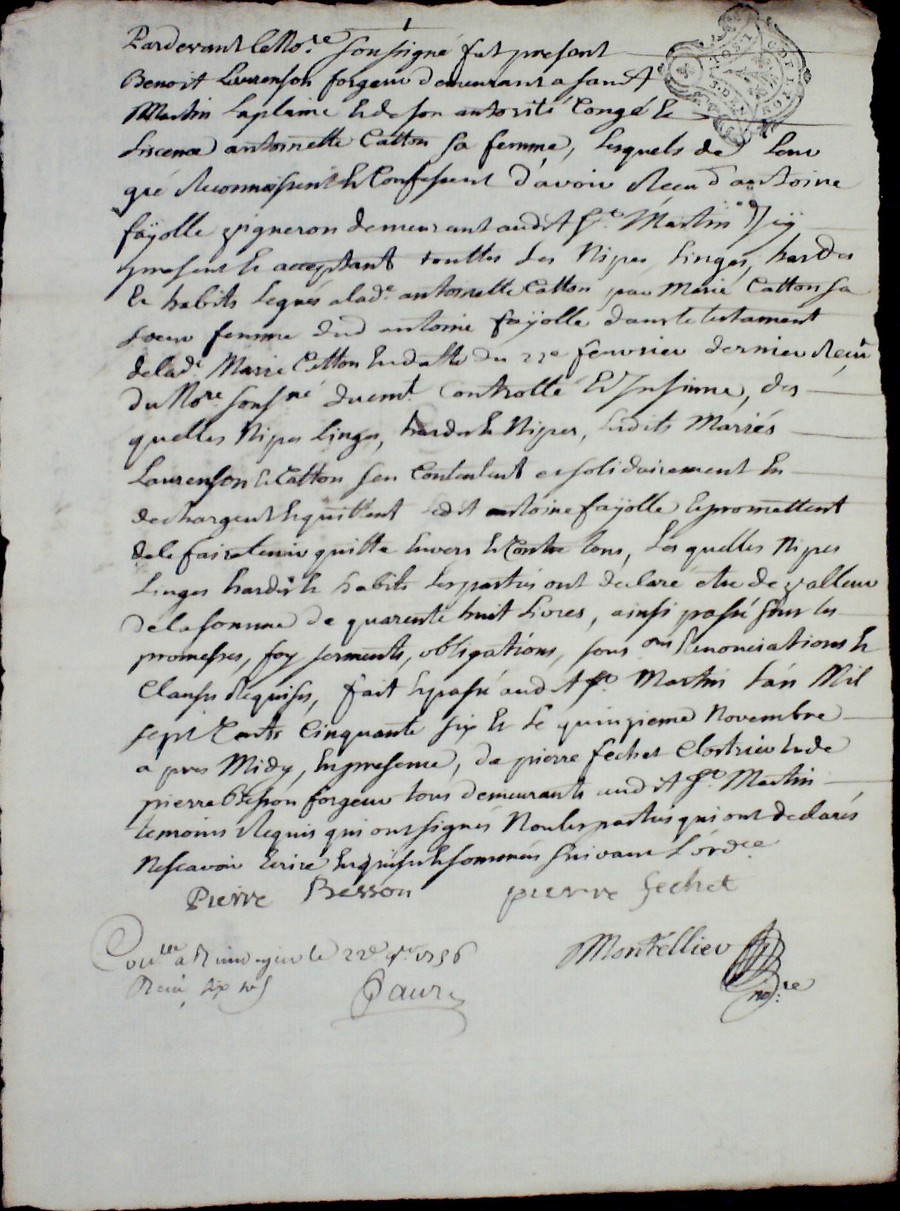 Pardevant le No.re soussigné fut present
Benoit Laurenson forgeur demeurant a sainct
Martin Laplaine et de son autorité Congé et
Liscence antoinette Catton sa femme, lesquels de leur
gré Reconnoissent et Confessent d'avoir Receu d'antoine
faÿolle vigneron demeurant audit St. Martin icÿ
present et acceptant touttes les Nipes Linges, hardes
et habits legués a lade. antoinette Catton par Marie Catton sa
soeur femme dud antoine faÿolle dans le testament
de lade Marie Catton en datte du 22e fevrier dernier Receu
du Nore sousné duemt. Controllé et Insinué, des
quelles Nipes linges, hardes et Nipes, lesdits Mariés
Laurenson et Catton sen Contentent et solidairement en
dechargent et quittent ledit antoine faÿolle et promettent
de le faire tenir quitte envers et Contre tous, Les quelles Nipes
Linges hardes et habits les parties ont declaré etre de valleur
de la somme de quarente huit Livres, ainsi passé sous les
promesses, foy serments, obligations, sous ons Renonciations et
Clauses Requises, fait et passé audit St. Martin L'an Mil
sept Cents Cinquante six et le quinzieme Novembre
apres Midy, en presence, de pierre fechet Clostrier et de
pierre Besson forgeur tous demeurants audit St. Martin
temoins Requis qui ont signés Non les parties qui ont declarés
Ne scavoir Ecrire enquis et sommés suivant L'ordce
Pierre Besson pierre fechet
Conllé a Rivedegier le 22e 9re 1756 Montéllier
Receu six sols Paure nore